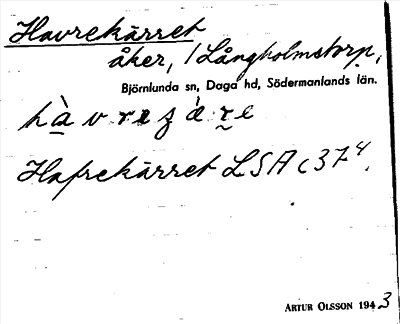 Havrekärret
åker, / Långholmstorp,
Björnlunda sn, Daga hd, Södermanlands län.
Hafrekärret LSA C37⁴.
ARTUR OLSSON 1943